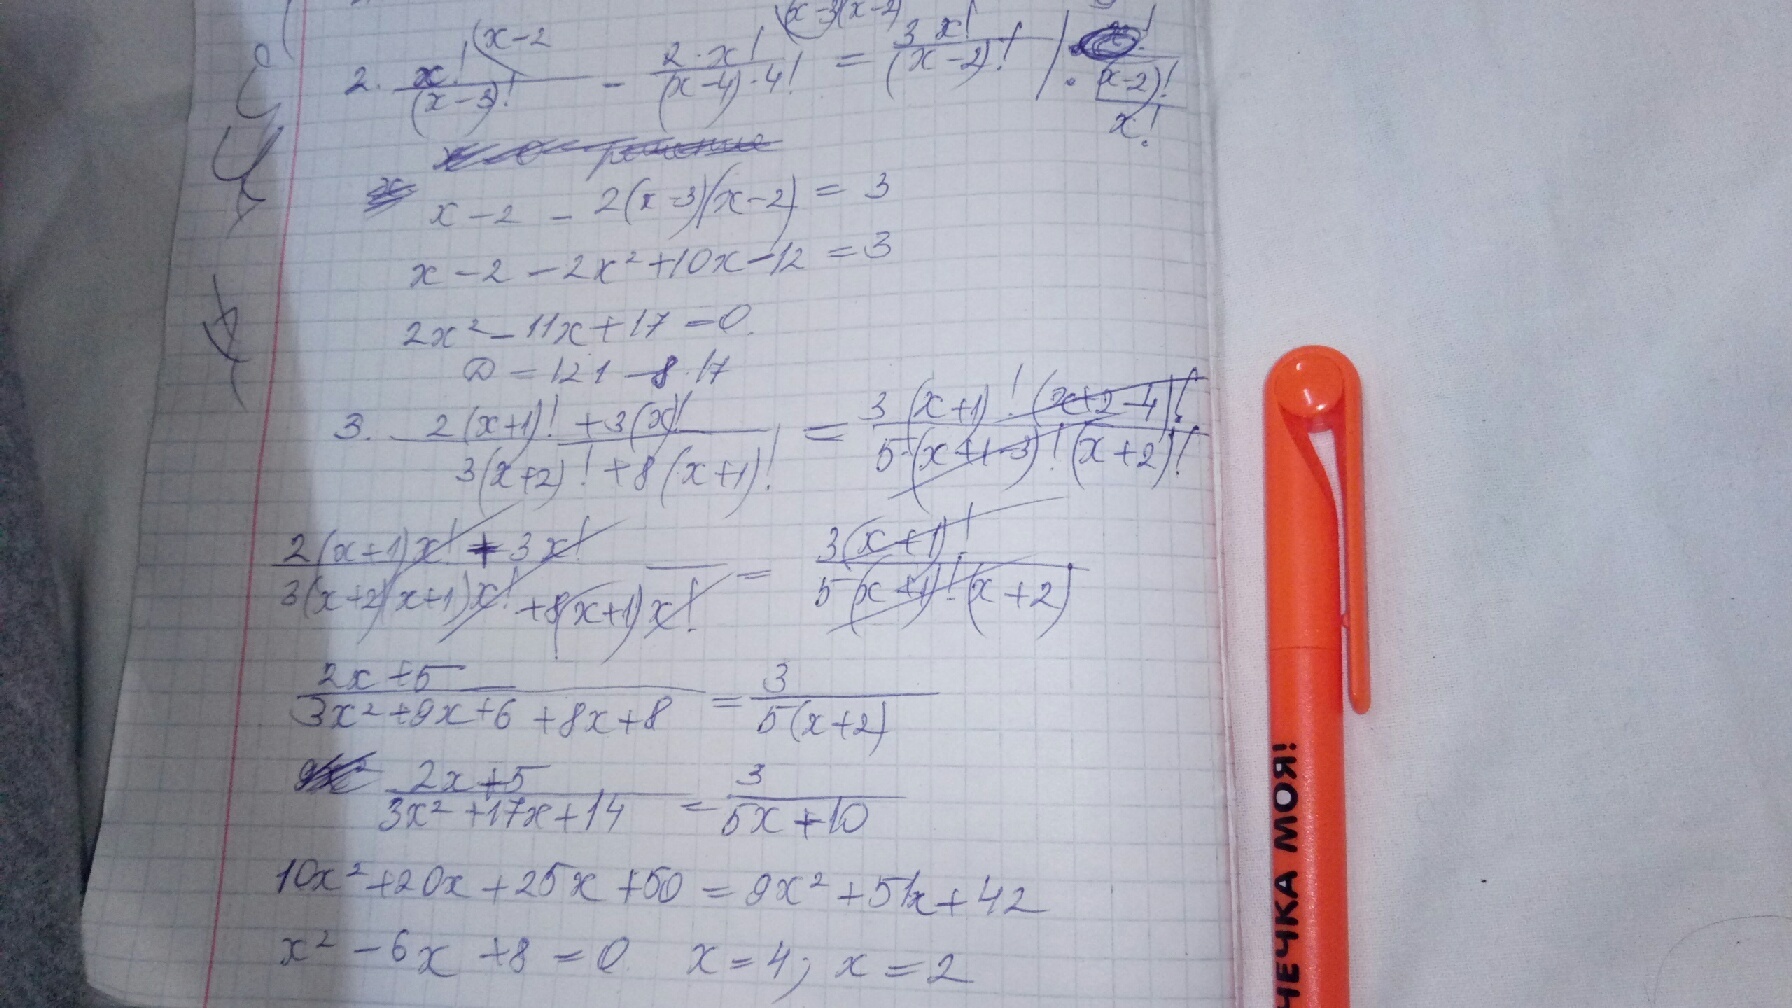 (x-3)(x-2)
2. x!(x-2 / (x-3)! - 2·x! / (x-4)·4! = 3x! / (x-2)! | · (x-2)! / x!
x-2 - 2(x-3)(x-2) = 3
x-2-2x²+10x-12=3
2x²-11x+17=0.
D=121-8·17
3. 2(x+1)!+3(x)! / 3(x+2)!+8(x+1)! = 3(x+1)!(x+2-4)! / 5·(x+1-3)!(x+2)!
2(x+1)x!+3x! / 3(x+2)(x+1)x!+8(x+1)x! = 3(x+1)! / 5(x+1)!(x+2)
2x+5 / 3x²+9x+6+8x+8 = 3 / 5(x+2)
2x+5 / 3x²+17x+14 = 3 / 5x+10
10x²+20x+25x+50=9x²+51x+42
x²-6x+8=0 x=4; x=2
НЕЧКА МОЯ!